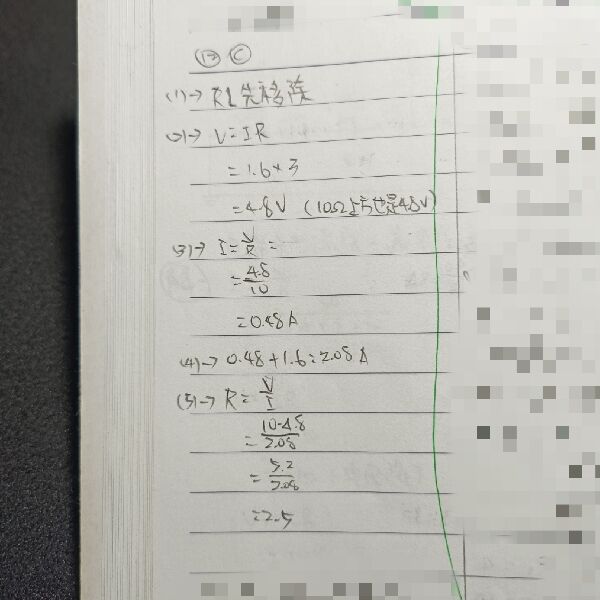 (13) (C)
(1)→ RL先移除
(2)→ V=IR
=1.6×3
=4.8V (10Ω上方也是4.8V)
(3)→ I=V/R=
=4.8/10
=0.48A
(4)→ 0.48+1.6=2.08A
(5)→ R=V/I
=10-4.8/2.08
=5.2/2.08
=2.5